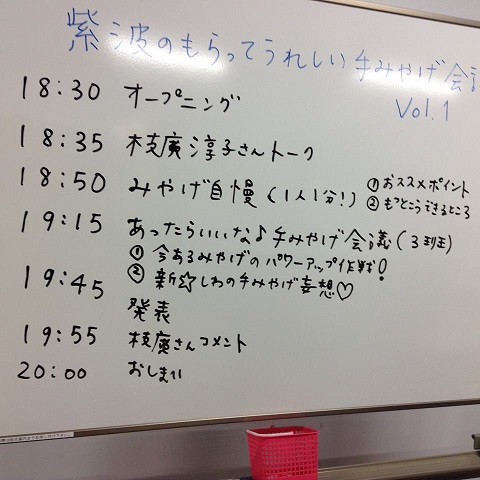 紫波のもらってうれしい手みやげ会議
Vol.1
18:30 オープニング
18:35 枝廣淳子さんトーク
18:50 みやげ自慢(1人1分!) ①おススメポイント
②もっとこうできるところ
19:15 あったらいいな♪手みやげ会議(3班)
①今あるみやげのパワーアップ作戦!
②新☆しわの手みやげ妄想♡
19:45 発表
19:55 枝廣さんコメント
20:00 おしまい